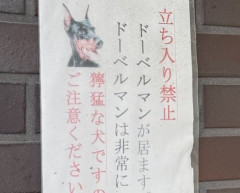 立ち入り禁止
ドーベルマンが居ます
ドーベルマンは非常に
獰猛な犬ですの
ご注意ください